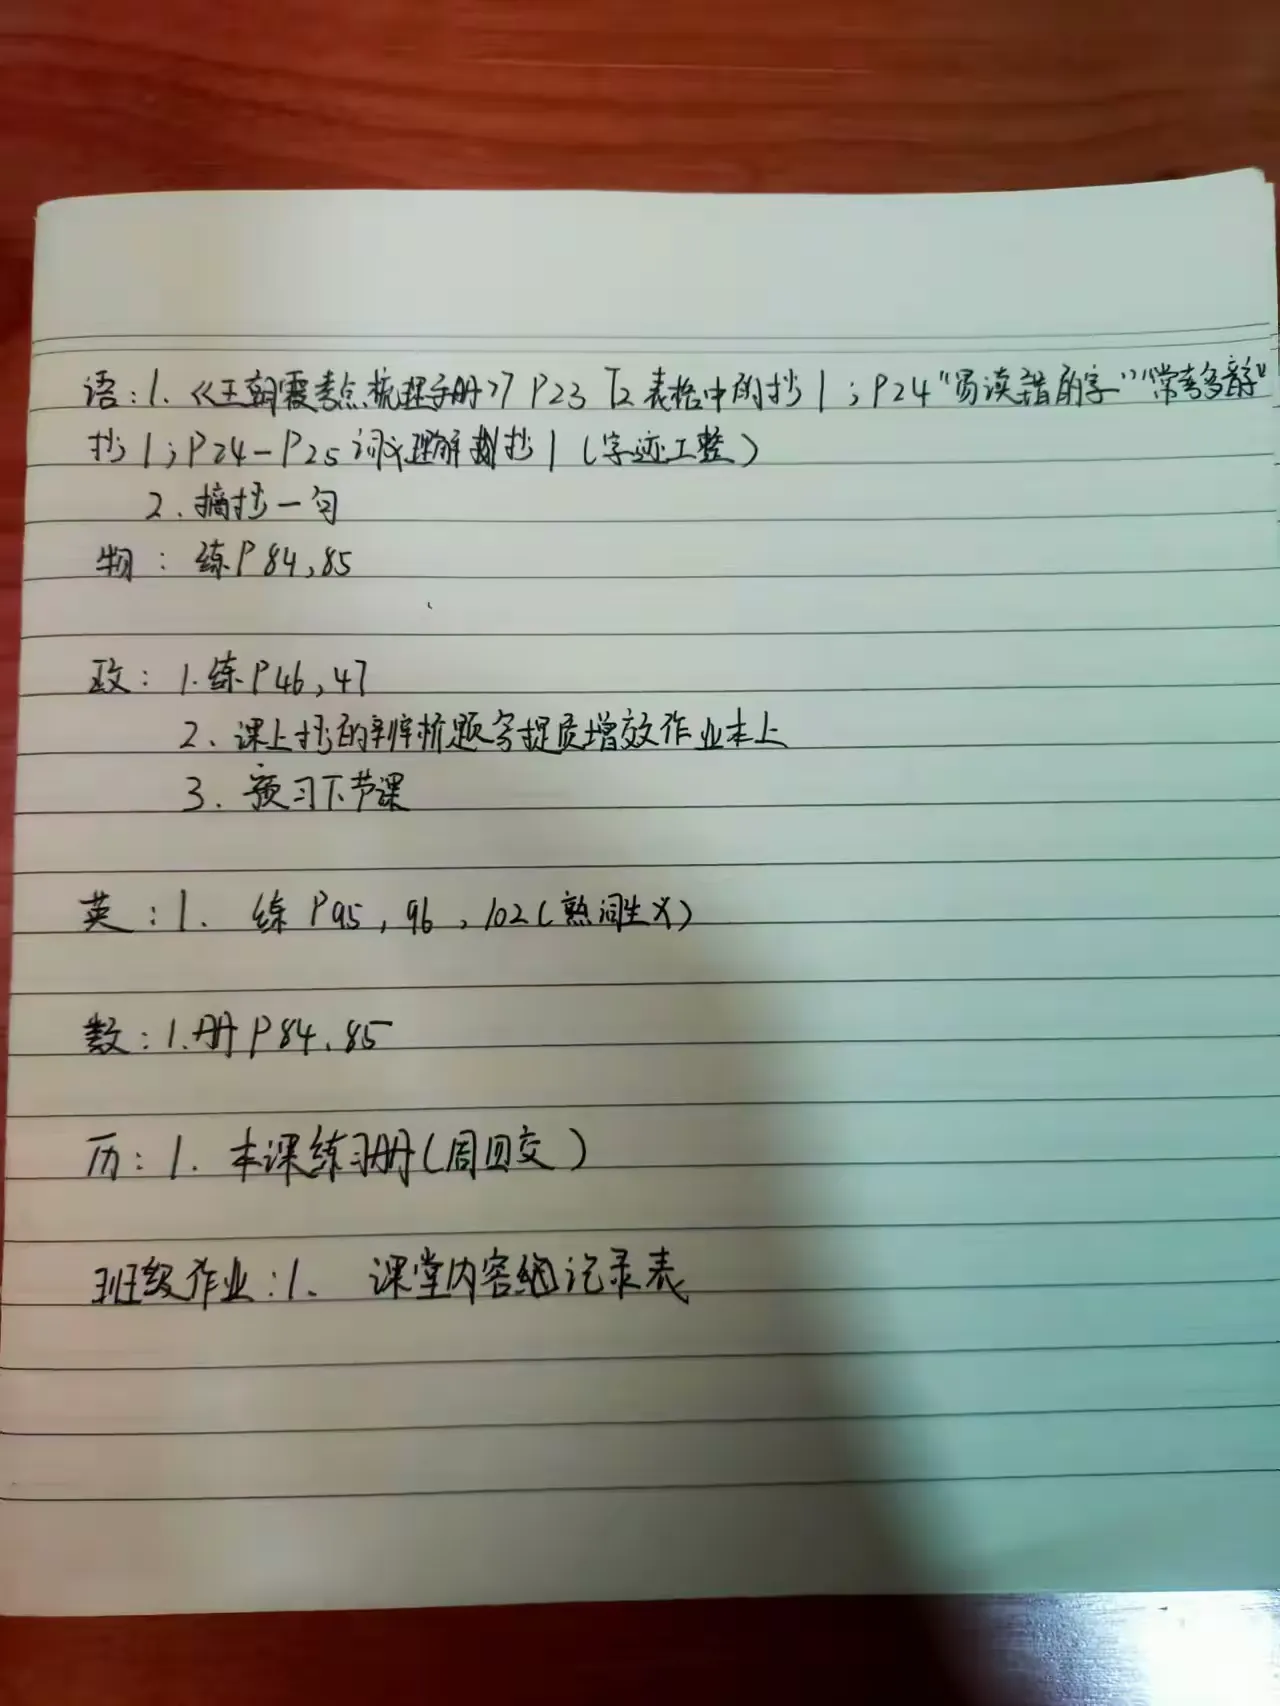 语：1.《王朝霞考点梳理手册》P23 T2 表格中的抄1；P24“易读错的字”“常考多音字”
抄1；P24-P25 词义理解抄1（字迹工整）
2. 摘抄一句
物：练P84,85
政：1.练P46,47
2. 课上抄的辨析题写提质增效作业本上
3. 预习下节课
英：1. 练P95,96,102(熟词生义)
数：1.册P84、85
历：1. 本课练习册(周四交)
班级作业：1、课堂内容记录表